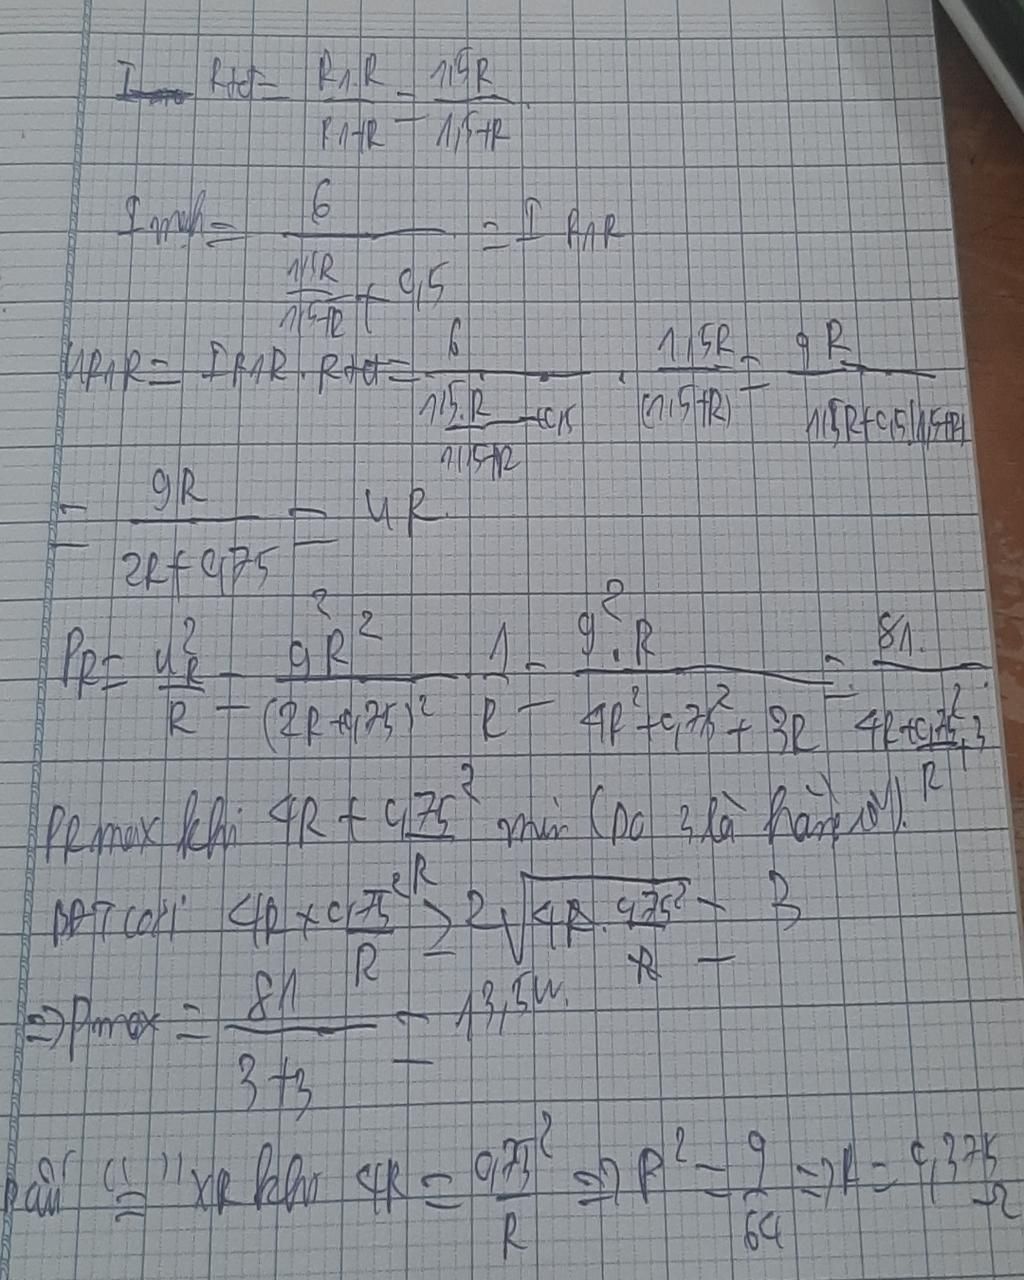 Rtđ = R1.R / R1+R = 1,5R / 1,5+R
I mạch = 6 / (1,5R / 1,5+R + 0,5) = I R1R
UR1R = IR1R . Rtđ = 6 / (1,5.R / 1,5+R + 0,5) . 1,5R / (1,5+R) = 9R / 1,5R+0,5(1,5+R)
= 9R / 2R+0,75 = UR
PR = U²R / R = 9²R² / (2R+0,75)² . 1 / R = 9².R / 4R²+0,75²+3R = 81 / 4R+0,75²/R+3
PR max khi 4R + 0,75² / R min (Do 3 là hằng số).
BĐT côsi 4R + 0,75² / R ≥ 2√4R . 0,75² / R = 3
=> Pmax = 81 / 3+3 = 13,5W.
Dấu "=" xR khi 4R = 0,75² / R => R² = 9 / 64 => R = 0,375 Ω